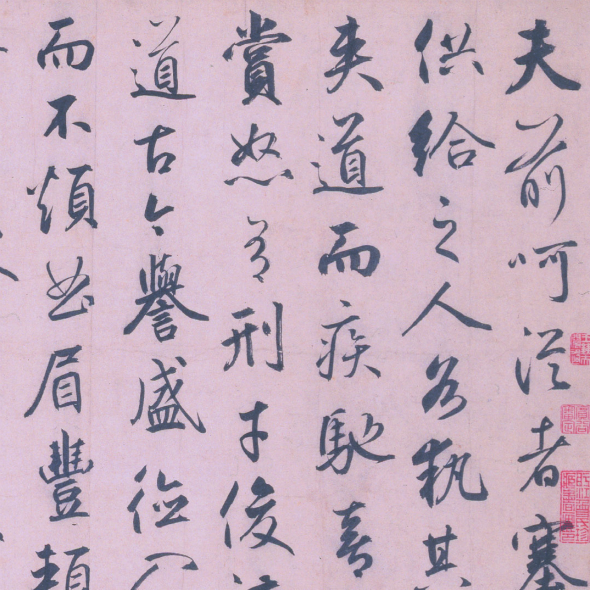 夫前呵從者塞
供給之人各執其
夾道而疾馳喜
賞怒有刑才俊
道古今譽盛德入
而不煩曲眉豐頰